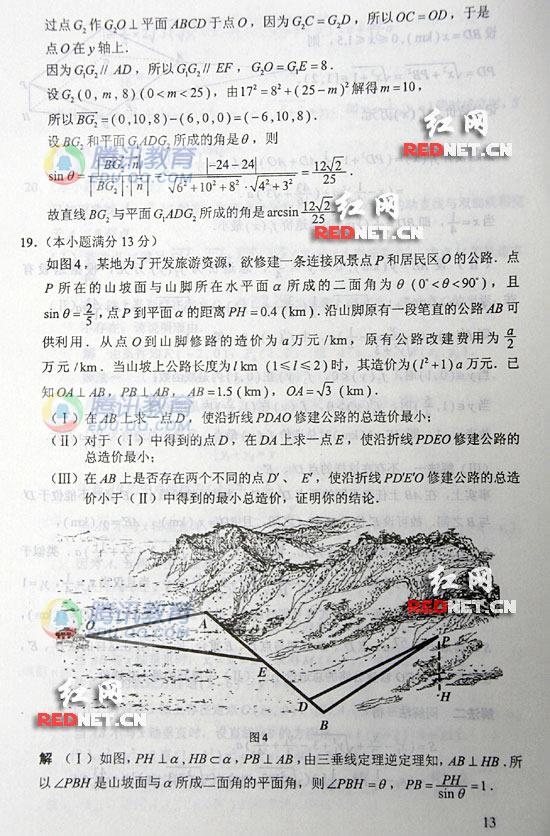 过点G₂作G₂O⊥平面ABCD于点O，因为G₂C=G₂D，所以OC=OD，于是
点O在y轴上.
因为G₁G₂// AD，所以G₁G₂// EF，G₂O=G₁E=8.
设G₂(0, m, 8)(0<m<25)，由17²=8²+(25-m)²解得m=10，
所以BG₂=(0,10,8)-(6,0,0)=(-6,10,8).
设BG₂和平面G₁ADG₂所成的角是θ，则
sin θ = |BG₂·n| / |BG₂||n| = |-24-24| / √6²+10²+8²·√4²+3² = 12√2/25.
故直线BG₂与平面G₁ADG₂所成的角是arcsin 12√2/25.
19.（本小题满分13分）
如图4，某地为了开发旅游资源，欲修建一条连接风景点P和居民区O的公路．点
P所在的山坡面与山脚所在水平面α所成的二面角为θ(0°<θ<90°)，且
sin θ=2/5，点P到平面α的距离PH=0.4(km)．沿山脚原有一段笔直的公路AB可
供利用．从点O到山脚修路的造价为a万元/km，原有公路改建费用为a/2
万元/km．当山坡上公路长度为l km (1≤l≤2)时，其造价为(l²+1)a万元．已
知OA⊥AB，PB⊥AB，AB=1.5(km)，OA=√3(km)．
（Ⅰ）在AB上求一点D，使沿折线PDAO修建公路的总造价最小；
（Ⅱ）对于（Ⅰ）中得到的点D，在DA上求一点E，使沿折线PDEO修建公路的
总造价最小；
（Ⅲ）在AB上是否存在两个不同的点D′、E′，使沿折线PD′E′O修建公路的总造
价小于（Ⅱ）中得到的最小总造价，证明你的结论．
O
A
E
D
B
P
H
图4
解 （Ⅰ）如图，PH⊥α，HB⊂α，PB⊥AB，由三垂线定理逆定理知，AB⊥HB．所
以∠PBH是山坡面与α所成二面角的平面角，则∠PBH=θ，PB=PH/sin θ=1．
13
红网
REDNET.CN
红网
REDNET.CN
红网
REDNET.CN
红网
REDNET.CN
腾讯教育
EDU.QQ.COM
腾讯教育
EDU.QQ.COM
腾讯教育
EDU.QQ.COM